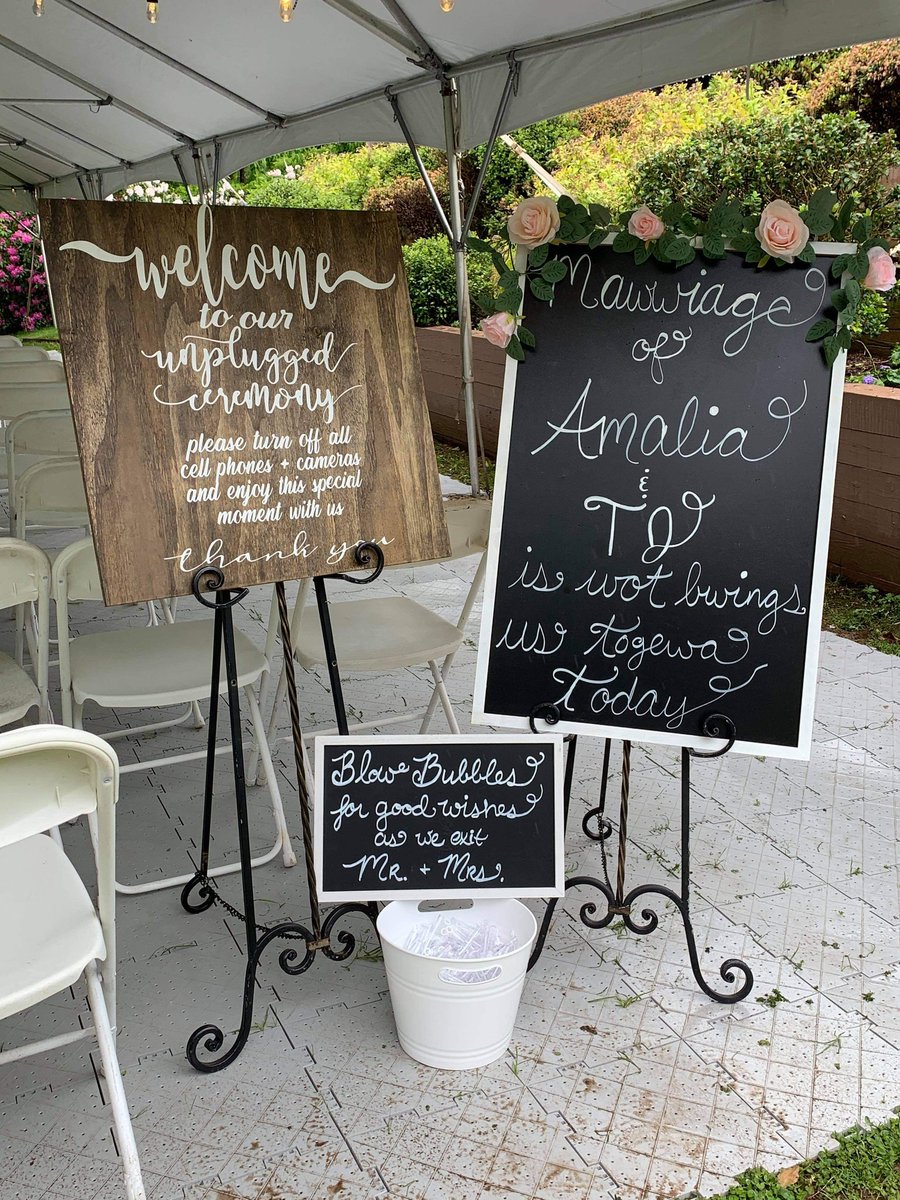 welcome
to our
unplugged
ceremony
please turn off all
cell phones + cameras
and enjoy this special
moment with us
thank you
Mawwiage
of
Amalia
&
TJ
is wot bwings
us togewa
Today
Blow Bubbles
for good wishes
as we exit
Mr. + Mrs.